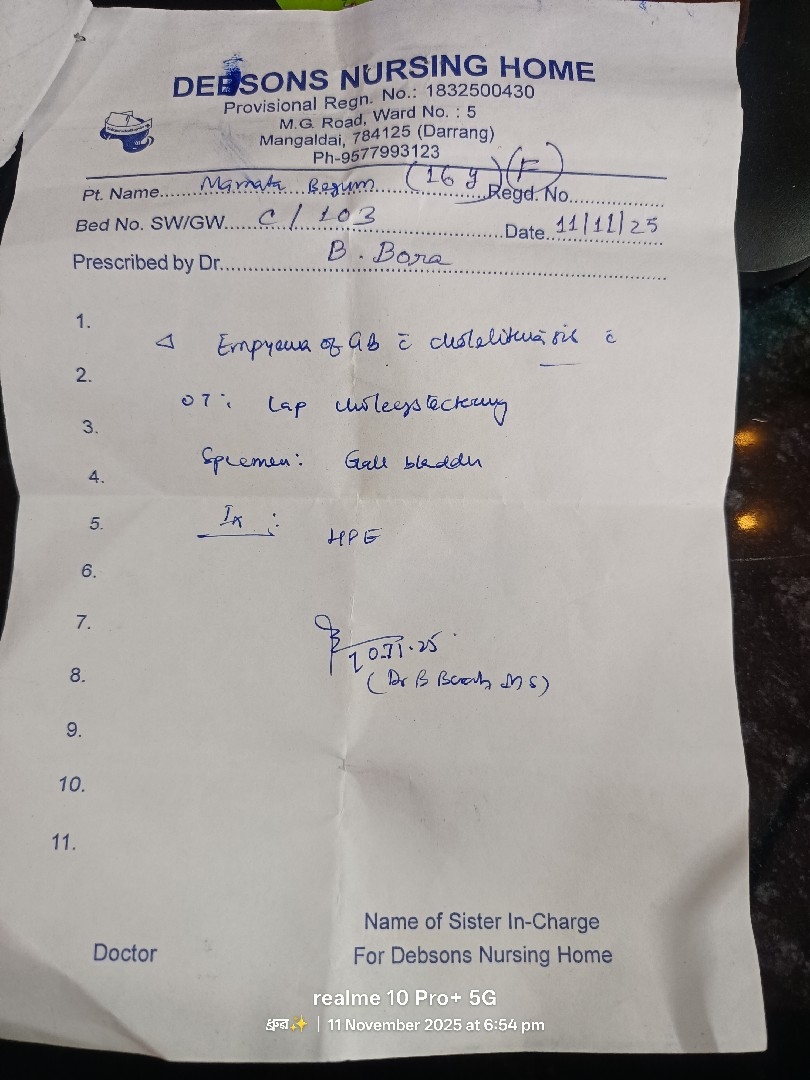 DEBSONS NURSING HOME
Provisional Regn. No.: 1832500430
M.G. Road, Ward No. : 5
Mangaldai, 784125 (Darrang)
Ph-9577993123
Pt. Name..... Mamata Begum (16 y) (F) Regd. No.....
Bed No. SW/GW..... C / 103 .....Date 11/11/25
Prescribed by Dr..... B. Bora
1.
△ Empyema of GB c̄ cholelithiasis c̄
2.
OT: Lap cholecystectomy
3.
Specimen: Gall bladder
4.
5. Ix :
HPE
6.
7.
11.25
8. (Dr B MS)
9.
10.
11.
Name of Sister In-Charge
Doctor For Debsons Nursing Home
realme 10 Pro+ 5G
ধ্রুব✨ | 11 November 2025 at 6:54 pm